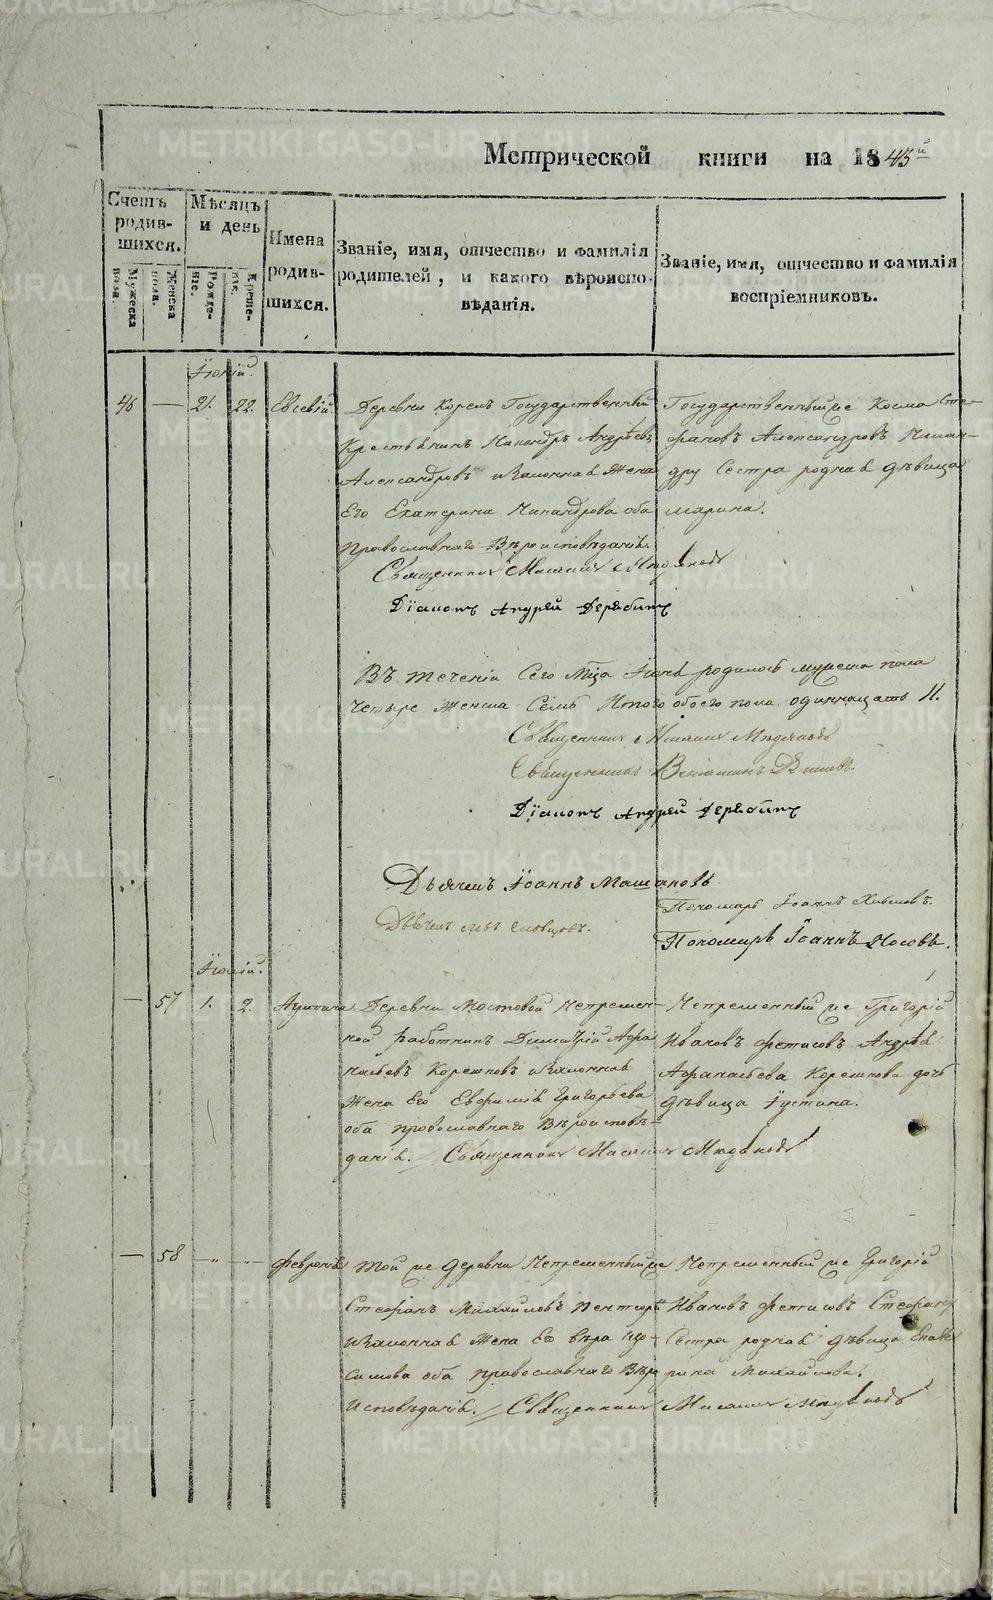 Метрической книги на 1843й
Счетъ родив-шихся.
Мужеска пола.
Женска пола.
Мѣсяцъ и день
Рожде-нiе.
Креще-нiе.
Имена родив-шихся.
Званiе, имя, отчество и фамилiя
родителей, и какого вѣроиспо-
вѣданiя.
Званiе, имя, отчество и фамилiя
воспрiемниковъ.
Iюнiй.
46 — 21. 22. Евсевiй
Деревни Корелъ Государственный
Крестьянинъ Никандръ Андреевъ
Александровъ и Законная Жена
Его Екатерина Никандрова оба
православнаго Вѣроисповѣданiя.
Государственный же Косма Сте-
фановъ Александровъ Никан-
дру Сестра родная дѣвица
Марина.
Священникъ
Дiаконъ Андрей Дерябинъ
Въ теченiи Сего Мца Iюня родилось мужеска пола
четыре Женска Семь Итого обоего пола одиннацать 11.
Священникъ
Священникъ Венiаминъ
Дiаконъ Андрей Дерябинъ
Дьячекъ Iоаннъ
Пономарь Iоаннъ
Дьячек
Пономарь Iоаннъ Носовъ.
Iюлiй.
— 57 1. 2.
Деревни Мостовой Непремен-
ной работникъ Димитрiй Афа-
насьевъ Корешковъ и Законная
Жена Его Евфимiя Григорьева
оба православнаго Вѣроисповѣ-
данiя. Священникъ
Непременный же Григорiй
Ивановъ Фетисовъ Андрея
Афанасьева Корешкова дочь
дѣвица Iустина.
— 58 — " — " — Февронiя
Той же деревни Непременный же
Стефанъ Михайловъ
и Законная Жена Его Вѣра
оба православнаго Вѣро
Исповѣданiя. Священникъ
Непременный же Григорiй
Ивановъ Фетисовъ Стефану
Сестра родная дѣвица Екате
рина Михайлова.
METRIKI.GASO-URAL.RU